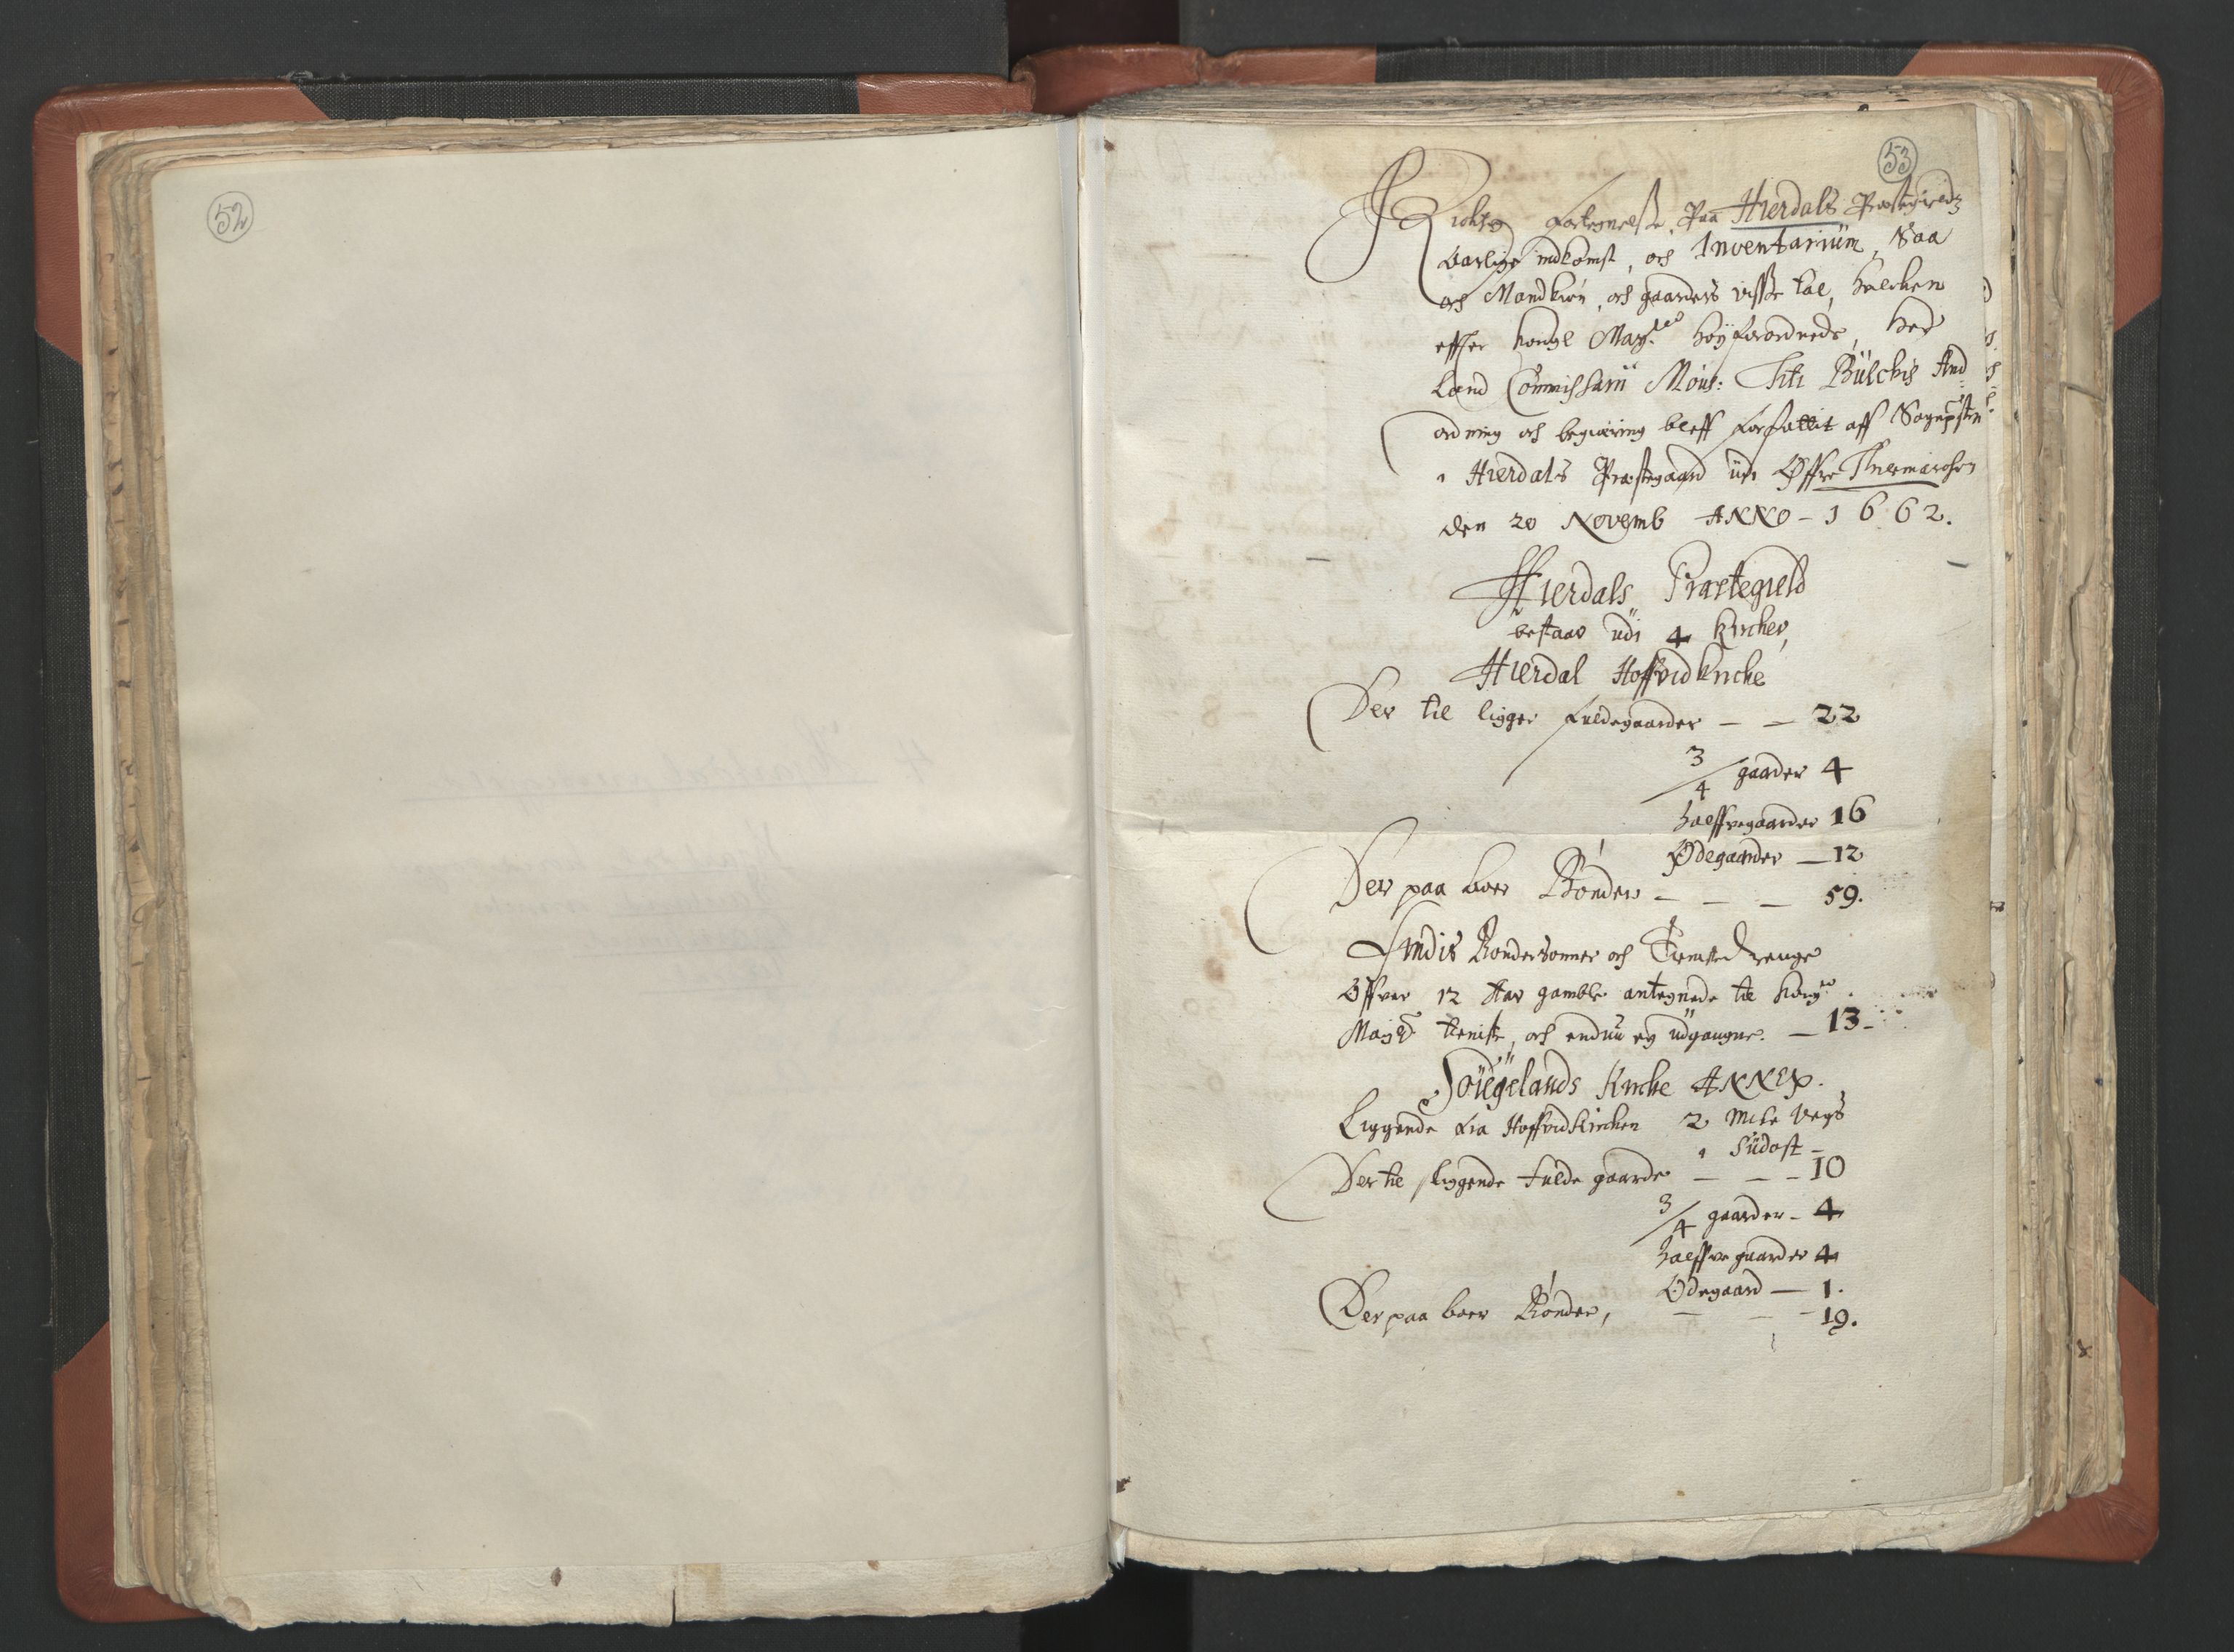 52
53
Richtig Fortegnelse Paa Hierdals Præstegieldz
Aarlige indkomst, och Inventarium, Saa
och Mandkiøn, och gaarders visse tal, huilchen
effter Kongl May.tes høyforordnede, her
Land Commissarii Mons: Titi Bülchis And
ordning och begiæring bleff forfattit aff Sognepsten
i Hierdals Præstegaard udi Øffre Thiemarchen
den 20 Novemb ANNO - 1662.
Hierdals Præstegield
bestaar udi 4 Kircher,
Hierdal Hoffvidkirche
Der til ligger fuldegaarder — — 22
3/4 gaarder 4
halffvegaarder 16
Ødegaarder — 12
Der paa boer Bønder — — — 59.
Findis Bondersønner och Tieniste Drenge
Offver 12 Aar gamble antegnede til Kong
May tieniste, och enduu ey udgangne. — 13.
Søuelands Kirche ANNEX.
Liggende fra Hoffvidkirchen 2 Mile Vegs
i Südost —
Der til liggende fulde gaarde — — — 10
3/4 gaarder — 4
halffve gaarder 4
Ødegaard — 1.
Der paa boer Bønder, — — — 19.